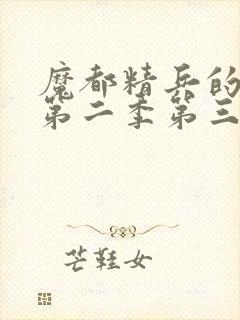 魔都精兵的
第二季第三
芒鞋女